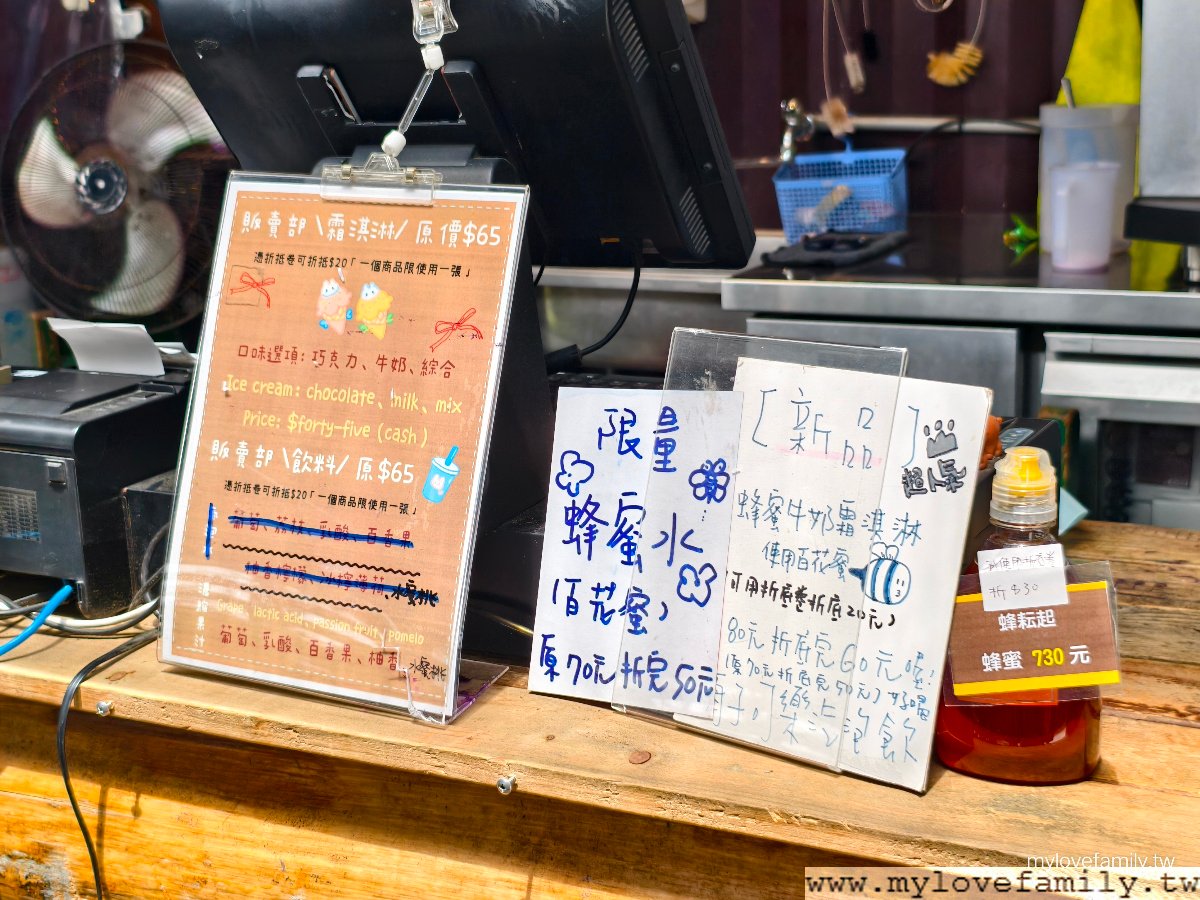 販賣部 \霜淇淋/ 原價$65
憑折抵卷可折抵$20「一個商品限使用一張」
口味選項：巧克力、牛奶、綜合
Ice cream：chocolate、milk、mix
Price：$forty-five (cash)
販賣部 \飲料/ 原$65
憑折抵卷可折抵$20「一個商品限使用一張」
葡萄、荔枝、乳酸、百香果
水蜜桃
濃縮果汁
Grape、lactic acid、passion fruit、pomelo
葡萄、乳酸、百香果、柚香
水蜜桃
限量
蜂蜜水
(百花蜜)
原70元 折完50元
[新品]
超人氣
蜂蜜牛奶霜淇淋
使用百花蜜
(可用折底卷折底20元)
80元 折底完60元喔!
(原70元折底完50元)
泡飲
折$30
蜂耘起
蜂蜜 730 元
mylovefamily.tw
www.mylovefamily.tw